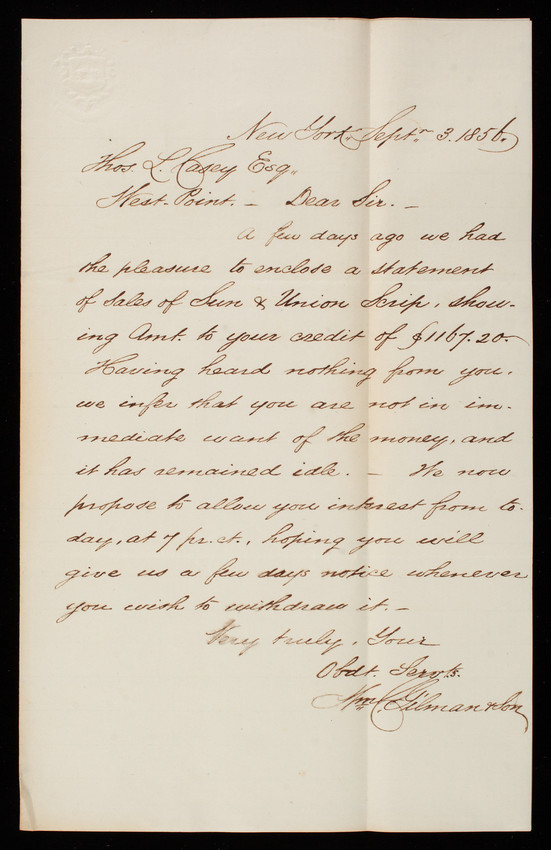 New York, Septr 3. 1856.
Thos. L. Casey Esq.
West. Point. – Dear Sir. –
A few days ago we had
the pleasure to enclose a statement
of sales of Sun & Union Scrip, show-
ing Amt. to your credit of $1167.20.–
Having heard nothing from you,
we infer that you are not in im-
mediate want of the money, and
it has remained idle. – We now
propose to allow you interest from to-
day, at 7 pr. ct., hoping you will
give us a few days notice whenever
you wish to withdraw it. –
Very truly, Your
Obdt. Servts.
Wm. C. Gilman & Son